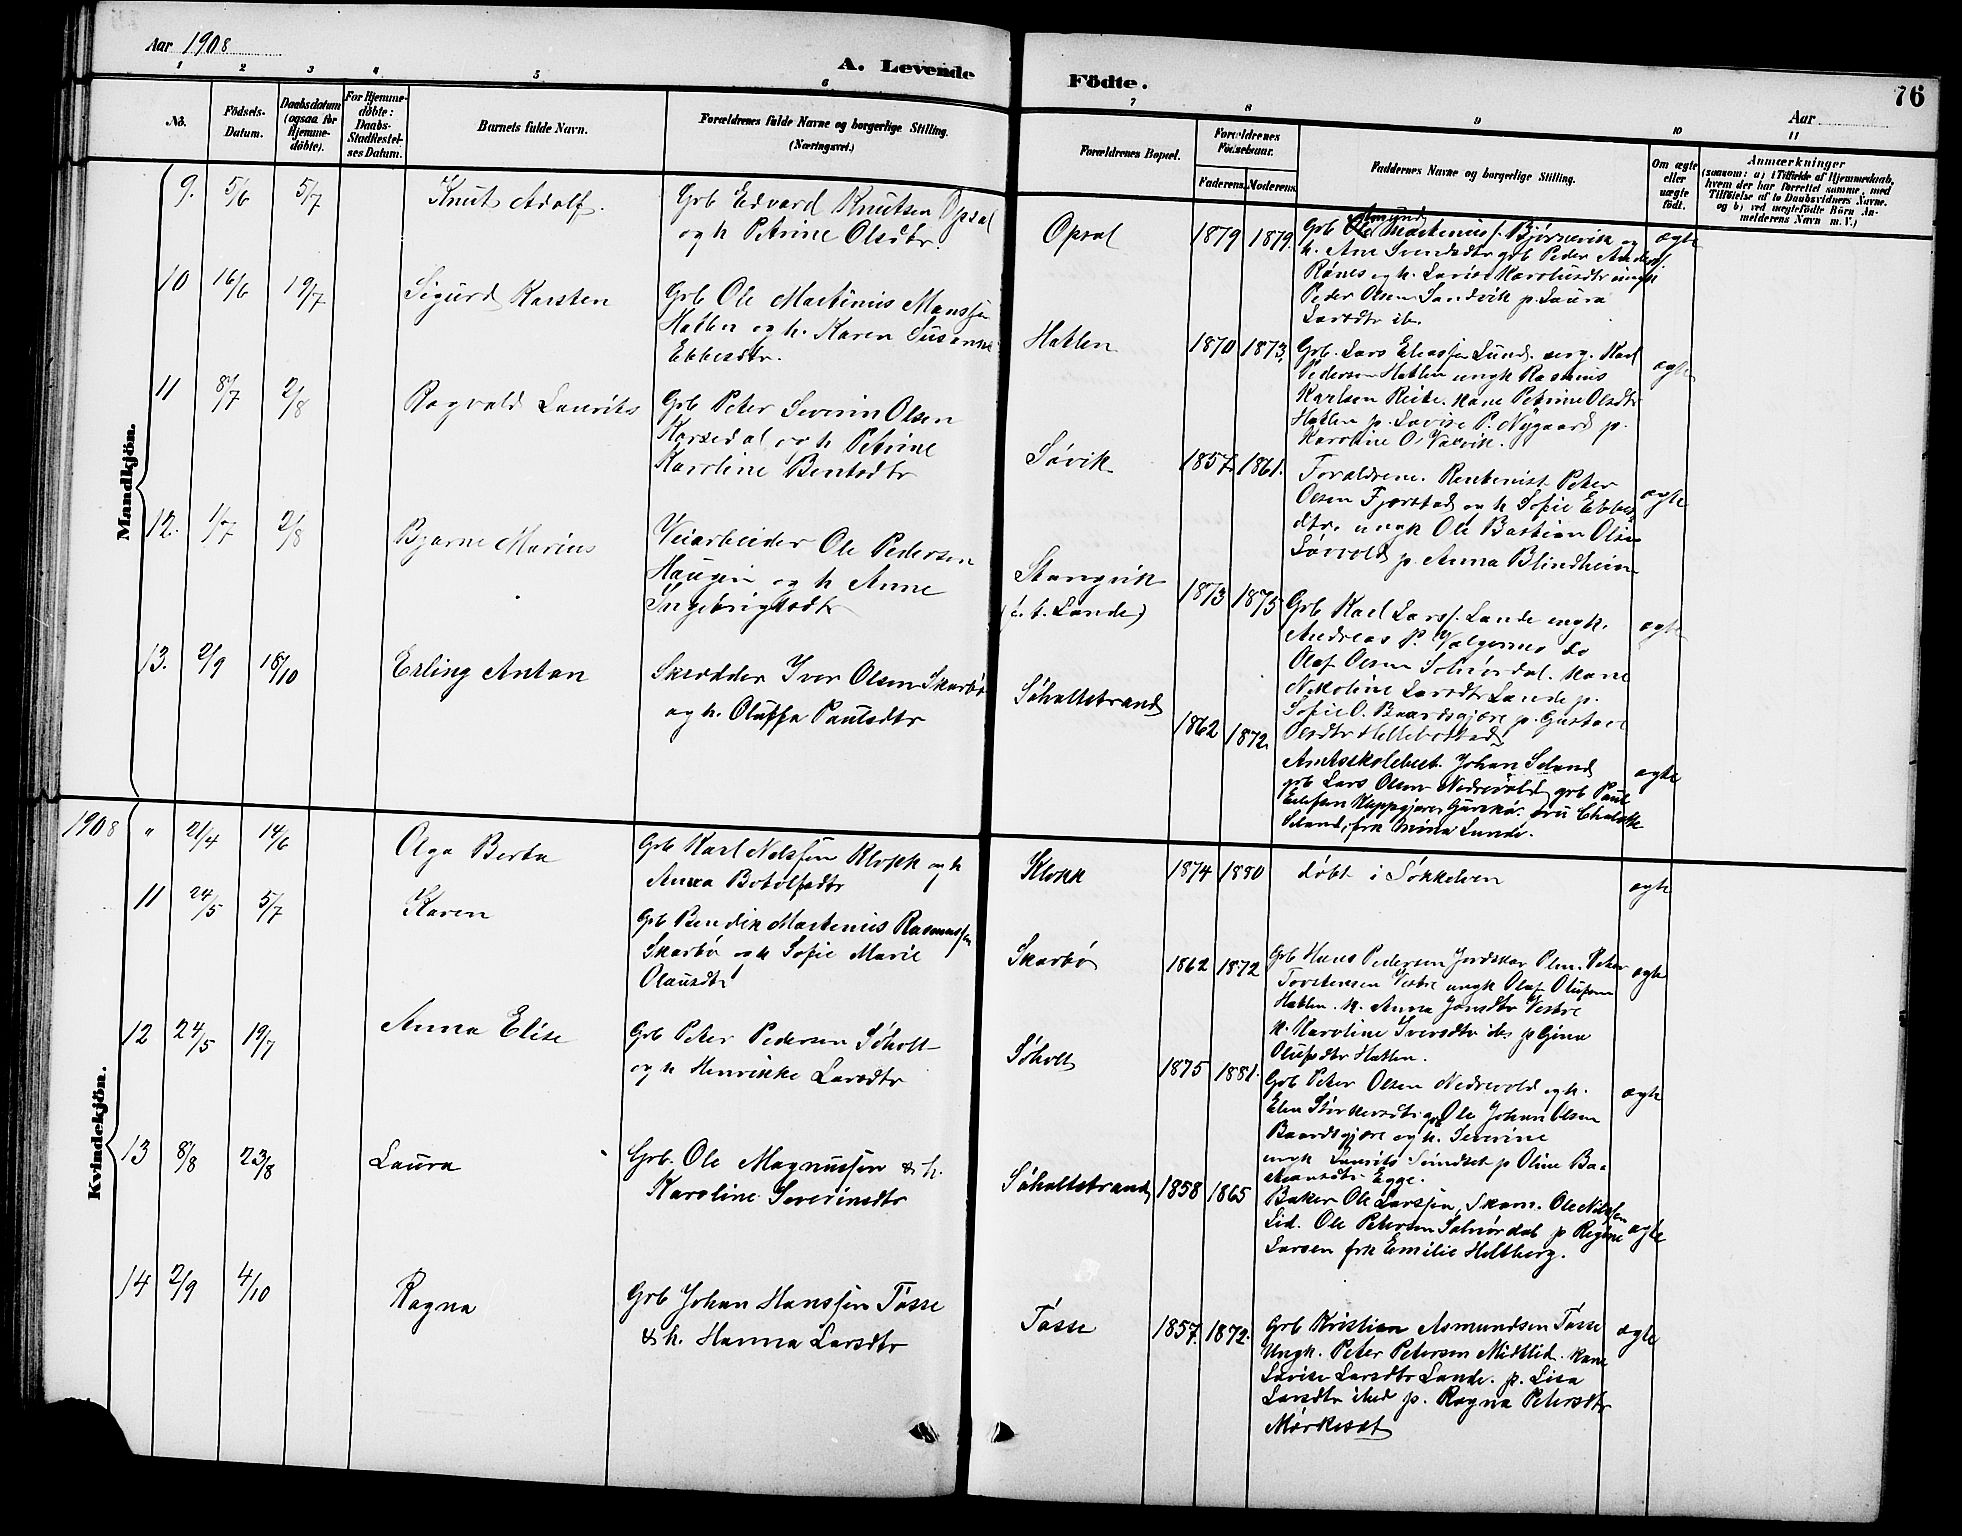 Aar 1908
A. Levende
Födte.
76
Aar
1 2 3 4 5 6 7 8 9 10 11
No.
Födsels-
Datum.
Daabsdatum
(ogsaa for
Hjemme-
döbte).
For Hjemme-
döbte:
Daabs-
Stadfæstel-
ses Datum.
Barnets fulde Navn.
Forældrenes fulde Navne og borgerlige Stilling.
(Næringsvei.)
Forældrenes Bopæl.
Forældrenes
Födselsaar.
Faderens.
Moderens.
Faddernes Navne og borgerlige Stilling.
Om ægte
eller
uægte
födt.
Anmærkninger
(saasom: a) i Tilfælde af Hjemmedaab,
hvem der har forrettet samme, med
Tilföielse af to Daabsvidners Navne.
og b) ved uægtefödte Börn An-
melderens Navn m. V.)
Mandkjön.
9. 5/6 5/7 Knut Adolf.
Grb Edvard Knutsen Opdal
og h Petrine Olsdtr.
Opdal 1879 1879.
Amund
Grb Ole Martenius s. Bjørnevik og
h. Ane Svendsdtr grb Peder Anders
Rønes og h. Lovise Karolusdtr ungk
Peder Olsen Sandvik p. Laura
Larsdtr ib.
ægte
10 16/6 19/7 Sigurd Karsten
Grb Ole Martinus Manssen
Hatlen og h. Karen Susanne
Ebbesdtr.
Hatlen 1870 1873.
Grb. Lars Eliassen Lund. serg. Karl
Pedersen Hatlen ungk Rasmus
Karlsen Reite. kone Petrine Olsdtr
Hatlen p. Lovise P. Nygaard p.
Karoline O. Vaxvik.
ægte
11 8/7 2/8 Ragvald Laurits
Grb Peter Severin Olsen
Korsedal og h Petrine
Karoline Bentsdtr
Søvik 1857. 1861.
Forældrene. Rentenist. Peter
Olsen Fjørstad og h Sofie Ebbes-
dtr. ungk Ole Bastian Olsen
Løvold p Anna Blindheim
ægte
12. 1/7 2/8 Bjarne Marius
Veiarbeider Ole Pedersen
Haugen og h Anne
Ingebrigtsdtr
Stangvik
(f. t. Lande) 1873 1875
Grb Karl Larss. Lande ungk.
Andreas P. Valgermo do
Olaf Olsen Solnørdal. kone
Nikoline Larsdtr Lande p.
Sofie O. Baardsgjære p. Gustava
Olsdtr Hellebostad
ægte
13. 2/9 18/10 Erling Anton
Skrædder Iver Olsen Skarbø
og h. Oluffa Paulsdtr
Søholtstrand 1862 1872.
Amtsskolebest. Johan Seland
grb Lars Olsen Nedrevold grb Paul
Klippgjøre, Gurskø. fru Charlotte
Seland, frk Mina Lunde.
ægte
Kvindekjön.
1908 " 21/4 14/6 Olga Berta
Grb Karl Nilssen Klokk og h
Anna Botolfsdtr
Klokk 1874 1880 døbt i Søkkelven ægte
11 24/5 5/7 Karen
Grb Bendik Martinus Rasmussen
Skarbø og h Sofie Marie
Olausdtr
Skarbø 1862 1872
Grb Hans Pedersen Jordskar Plm. Peter
Torstensen Vestre ungk Olaf Olufsen
Hatlen. k. Anna Jonsdtr Vestre
k. Karoline Iversdtr ibs p Gjina
Olufsdtr Hatlen.
ægte
12 24/5 19/7 Anna Elise
Grb Peter Pedersen Søholt
og h Henrikke Larsdtr
Søholt 1875 1881.
Grb Peter Olsen Nedrevold og h.
Elen Størkersdtr grb Ole Johan Olsen
Baardsgjære og h. Severine
ungk Laurits Svindset p Oline Ba-
Egge.
ægte
13 8/8 23/8 Laura
Grb. Ole Magnussen & h.
Karoline Severinsdtr
Søholtstrand 1858 1865
Baker Ole Larssen, Skom. Ole Nilssen
Lid. Ole Petersen Solnørdal p Regine
Larsen frk Emilie Heltberg.
ægte
14 2/9 4/10 Ragna
Grb Johan Hanssen Tøsse
& h. Hanna Larsdtr
Tøsse 1857. 1872.
Grb Kristian Asmundsen Tøsse
Ungk. Peter Petersen Midtlid. kone
Lovise Larsdtr Lande. p. Lisa
Larsdtr ibid p. Ragna Petersdtr
Mørkeset
ægte